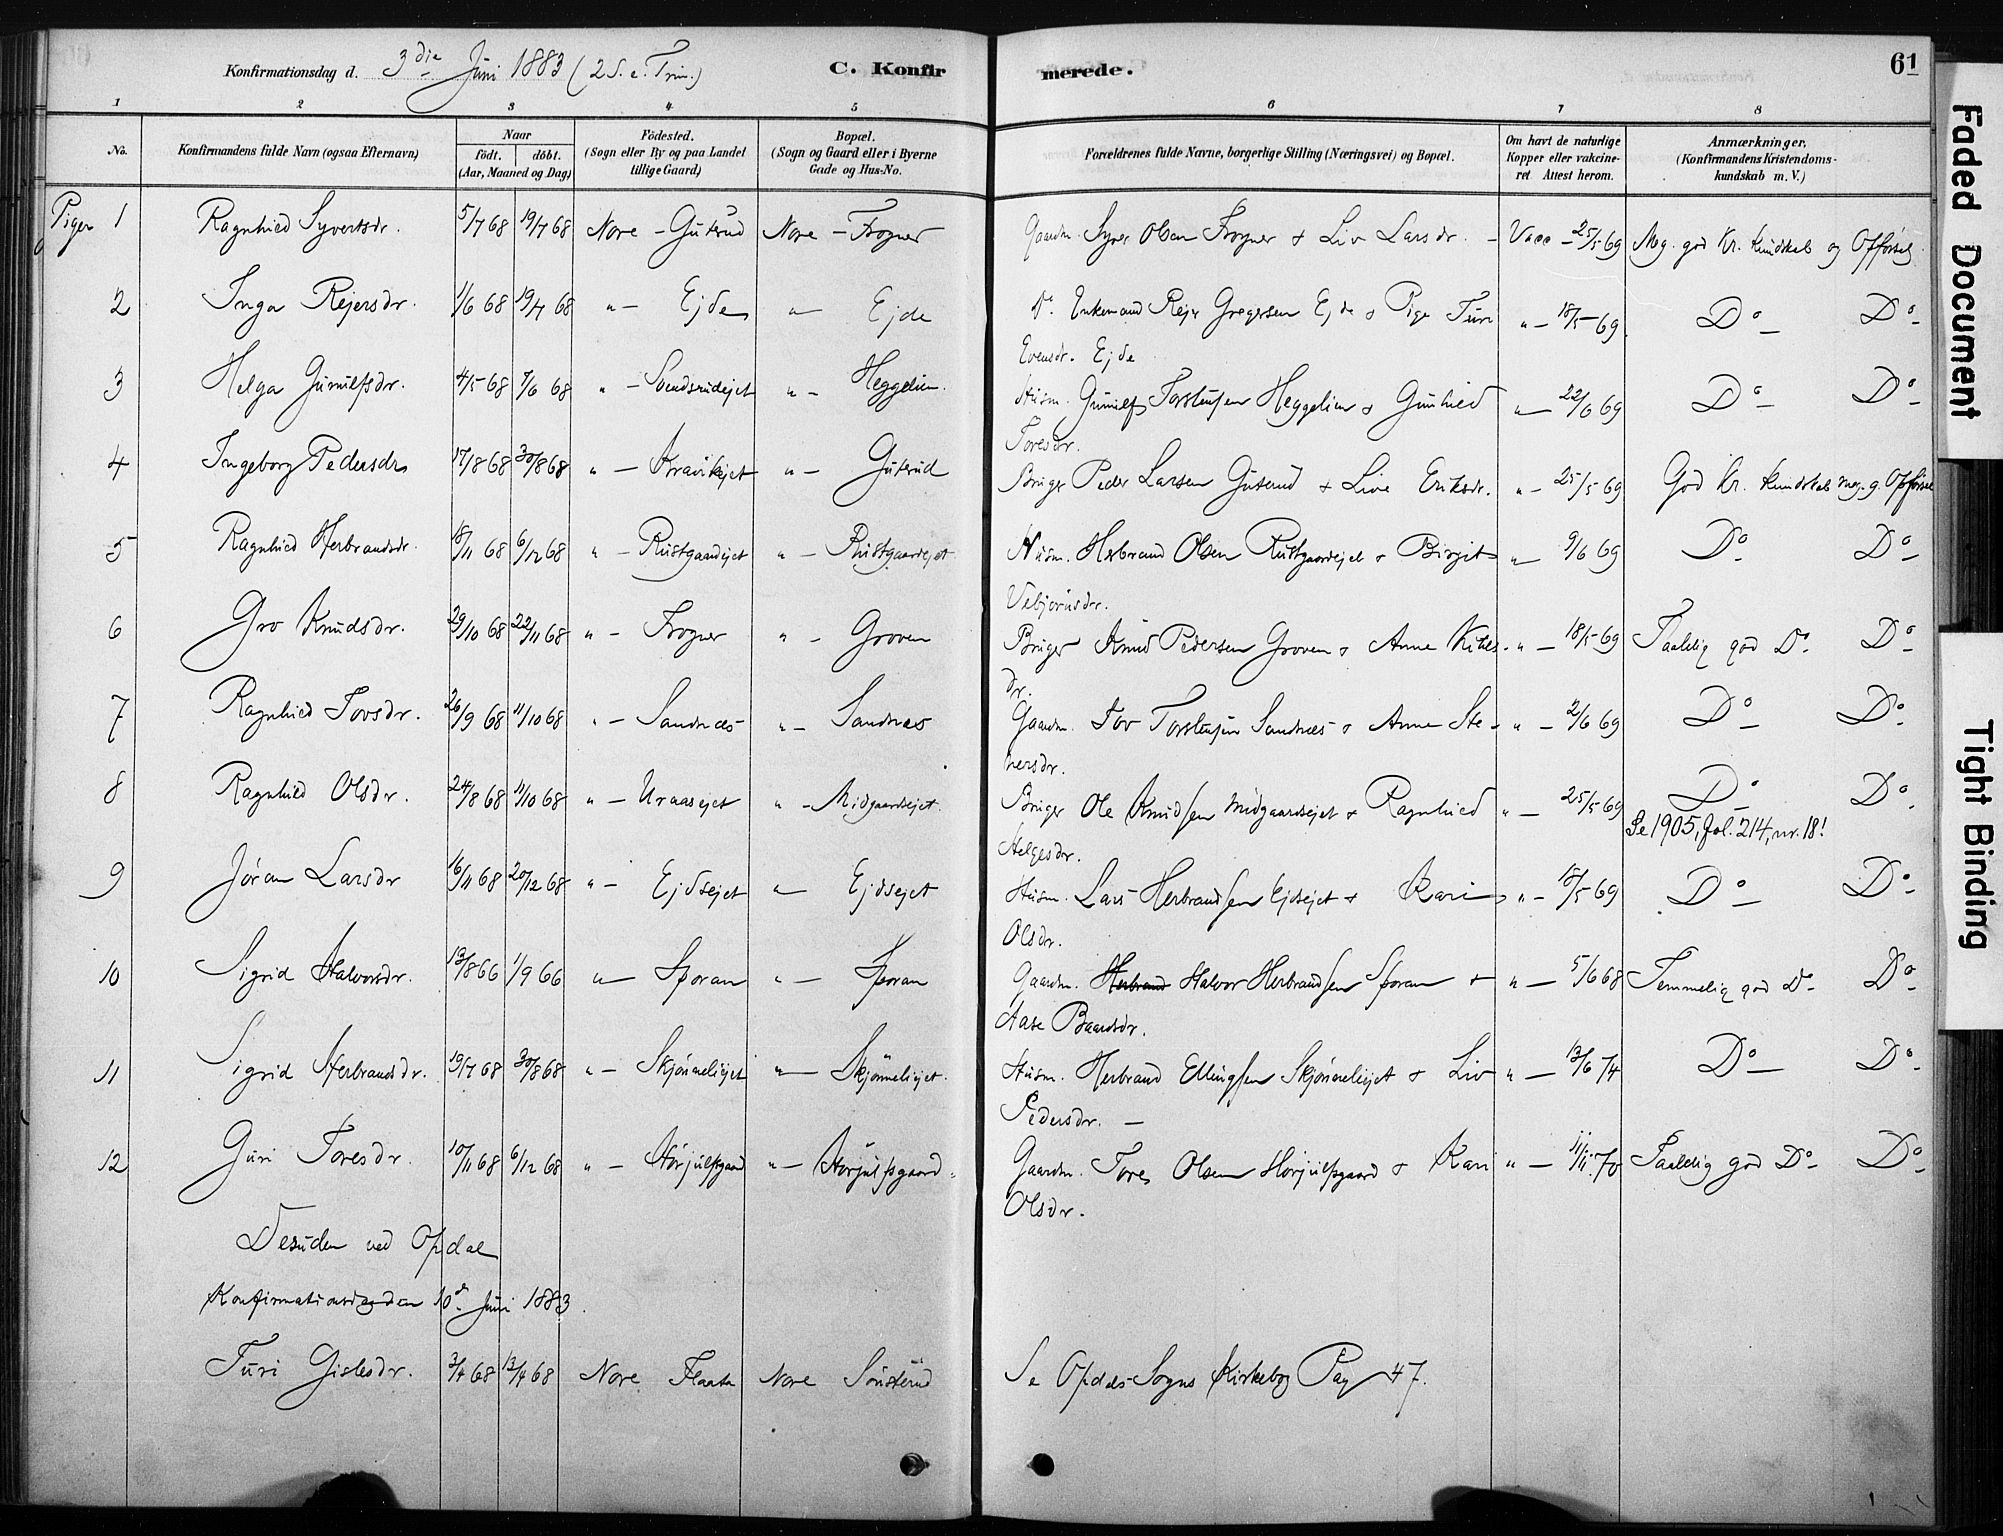 Konfirmationsdag d. 3die Juni 1883 (2 S. e. Trin.) C. Konfirmerede. 61
1 2 3 4 5 6 7 8
No. Konfirmandens fulde Navn (ogsaa Efternavn) Naar født. døbt. (Aar, Maaned og Dag) Fødested. (Sogn eller By og paa Landet tillige Gaard) Bopæl. (Sogn og Gaard eller i Byerne Gade og Hus-No. Forældrenes fulde Navne, borgerlige Stilling (Næringsvei) og Bopæl. Om havt de naturlige Kopper eller vakcineret Attest herom. Anmærkninger. (Konfirmandens Kristendomskundskab m. V.)
Piger 1 Ragnhild Syvertsdr. 5/7 68 19/7 68 Nore - Guterud Nore - Frogner Gaardm. Syver Olsen Frogner + Liv Larsdr. - Vacc - 25/5 69 Meg. god Kr. Kundskab og Opførsel
2 Inga Rejersdr. 1/6 68 19/7 68 " - Ejde " Ejde Do. Enkemand Rejer Gregersen Ejde + Pige Turi " - 18/5 69 Do Do
Evensdr. Ejde
3 Helga Gunulfsdr. 4/5 68 7/6 68 " - Svendsrudejet " - Heggelien. Husm. Gunulf Torstensen Heggelien + Gunhild " - 22/6 69 Do Do
Toresdr.
4 Ingeborg Pedersdr 17/8 68 30/8 68 " - Kravikejet " - Guterud Bruger Peder Larsen Guterud + Live Eriksdr. " - 25/5 69 God Kr. Kundskab meg. g. Opførsel
5 Ragnhild Herbrandsdr. 18/11 68 6/12 68 " - Rustgaardejet " - Rustgaardejet Husm. Herbrand Olsen Rustgaardejet + Birgit " - 9/6 69 Do Do
Vebjørnsdr.
6 Gro Knudsdr. 29/10 68 22/11 68 " - Frogner " - Groven Bruger Knud Pedersen Groven + Anne Kitils- " - 18/5 69 Taalelig god Do. Do
dr.
7 Ragnhild Tovsdr. 26/9 68 11/10 68 " - Sandnæs " - Sandnæs Gaardm. Tov Torstensen Sandnæs + Anne Ste- " - 2/6 69 Do Do
nersdr.
8 Ragnhild Olsdr. 24/8 68 11/10 68 " - Uraasejet " - Midgaardsejet Bruger Ole Knudsen Midgaardsejet + Ragnhild " - 25/5 69 Do Do
Helgesdr. Se 1905, fol. 214, nr. 18!
9 Jøran Larsdr 16/11 68 20/12 68 " - Ejdsejet " Ejdsejet Husm. Lars Herbrandsen Ejdsejet + Kari " - 18/5 69 Do Do
Olsdr.
10 Sigrid Halvorsdr. 13/8 66 1/9 66 " - Sporan " - Sporan Gaardm. Herbrand Halvor Herbrandsen Sporan + " - 5/6 68 Temmelig god Do Do
Aase Baardsdr.
11 Sigrid Herbrandsdr. 19/7 68 30/8 68 " - Skjønneliejet " - Skjønneliejet. Husm. Herbrand Ellingsen Skjønneliejet + Liv " - 13/6 74 Do Do
Pedersdr. -
12 Guri Toresdr. 10/11 68 6/12 68 " - Hørjulfsgaard " - Hørjulfsgaard Gaardm. Tore Olsen Hørjulfsgaard + Kari " - 11/11 70 Taalelig god Do Do
Olsdr.
Desuden ved Opdal
Konfirmationsdagen 10de Juni 1883.
Turi Gislesdr. 3/4 68 13/4 68 Nore Flaata Nore Sønsterud Se Opdals Sogns Kirkebog Pag 47.
Faded Document
Tight Binding